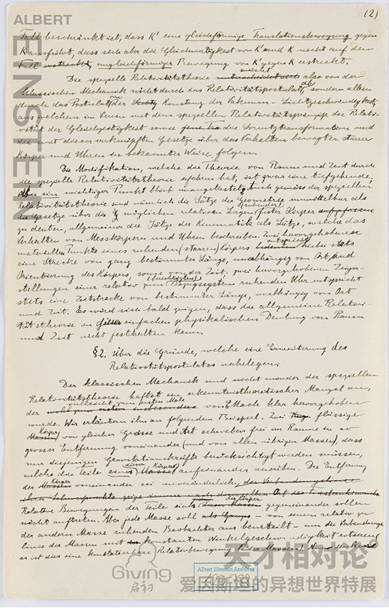 ALBERT
EINSTEIN
(2)
Fall beschränkt ist, dass K' eine gleichförmige Translationsbewegung gegen
K ausführt, dass sich aber die Gleichwertigkeit von K' und K nicht auf den
Bewegung von K' gegen K erstreckt.
Die spezielle Relativitätstheorie weicht also von der
klassischen Mechanik nicht durch das Relativitätspostulat ab, sondern allein
durch das Postulat der Konstanz der Vakuum-Lichtgeschwindigkeit,
aus welchem im Verein mit dem speziellen Relativitätsprinzip die Relati-
vität der Gleichzeitigkeit sowie die Lorentztransformation und
die mit dieser verknüpften Gesetze über das Verhalten bewegter starrer
Körper und Uhren in bekannter Weise folgen.
Die Modifikation, welche die Theorie von Raum und Zeit durch
die spezielle Relativitätstheorie erfahren hat, ist zwar eine tiefgehende,
aber ein wichtiger Punkt blieb unangetastet. Auch gemäss der speziellen
Relativitätstheorie sind nämlich die Sätze der Geometrie unmittelbar als
die Gesetze über die möglichen relativen Lagen fester Körper
zu deuten, allgemeiner die Sätze der Kinematik als Sätze, welche das
Verhalten von Messkörpern und Uhren beschreiben. Zwei hervorgehobenen
materiellen Punkten eines ruhenden (starren) Körpers entspricht hierbei stets
eine Strecke von ganz bestimmter Länge, unabhängig von Ort und
Orientierung des Körpers, sowie von der Zeit; zwei hervorgehobenen Zeiger-
stellungen einer relativ zum (berechtigten) Bezugssystem ruhenden Uhr entspricht
stets eine Zeitstrecke von bestimmter Länge, unabhängig von Ort
und Zeit. Es wird sich bald zeigen, dass die allgemeine Relativi-
tätstheorie an dieser einfachen physikalischen Deutung von Raum
und Zeit nicht festhalten kann.
§2. Über die Gründe, welche eine Erweiterung des
Relativitätspostulates nahelegen.
Der klassischen Mechanik und nicht minder der speziellen
Relativitätstheorie haftet ein erkenntnistheoretischer Mangel an,
der vielleicht zum ersten Male von E. Mach klar hervorgehoben
wurde. Wir erläutern ihn an folgendem Beispiel. Zwei flüssige
Körper von gleicher Grösse und Art schweben frei im Raume in so
grosser Entfernung voneinander (und von allen übrigen Massen), dass
nur diejenigen Gravitationskräfte berücksichtigt werden müssen,
welche die Teile eines dieser Körper aufeinander ausüben. Die Entfernung
der Körper voneinander sei unveränderlich.
Relative Bewegungen der Teile eines der Körper gegeneinander sollen
nicht auftreten. Aber jede Masse soll – von einem relativ zu
der anderen Masse ruhenden Beobachter aus beurteilt – um die Verbindungs-
linie der Massen mit konstanter Winkelgeschwindigkeit rotieren
es ist dies eine konstatierbare Relativbewegung
Albert Einstein Archives
Giving
启初
天才相对论
爱因斯坦的异想世界特展